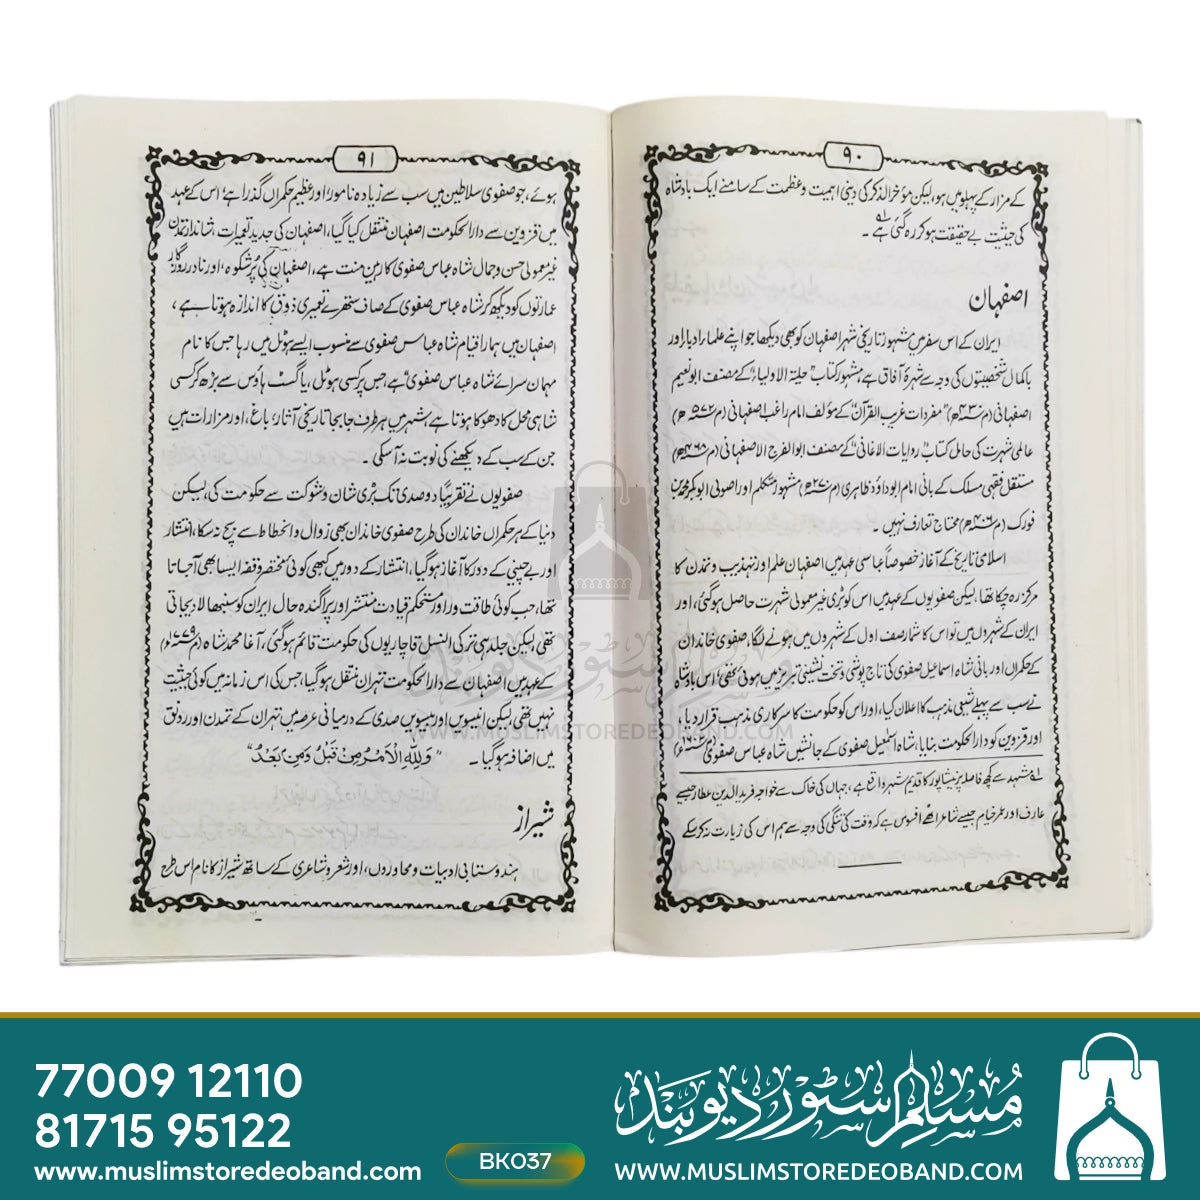 ۹۰
کے مزار کے پہلو میں ہو، لیکن مؤخر الذکر کی دینی اہمیت و عظمت کے سامنے ایک بادشاہ
کی حیثیت بے حقیقت ہو کر رہ گئی ہے ۔
اصفہان
ایران کے اس سفر میں مشہور تاریخی شہر اصفہان کو بھی دیکھا جو اپنے علماء ادباء اور
باکمال شخصیتوں کی وجہ سے شہرۂ آفاق ہے، مشہور کتاب "حلیۃ الاولیاء" کے مصنف ابو نعیم
اصفہانی (م ۴۳۰ھ) "مفردات غریب القرآن" کے مؤلف امام راغب اصفہانی
عالمی شہرت کی حامل کتاب "روایات الاغانی" کے مصنف ابو الفرج الاصفہانی
مستقل فقہی مسلک کے بانی امام ابو داؤد ظاہری (م ۲۷۰ھ) مشہور متکلم اور اصولی ابوبکر محمد بن
فورک (م ۴۰۶ھ) محتاج تعارف نہیں ۔
اسلامی تاریخ کے آغاز خصوصاً عباسی عہد میں اصفہان علم اور تہذیب و تمدن کا
مرکز رہ چکا تھا، لیکن صفویوں کے عہد میں اس کو بڑی غیر معمولی شہرت حاصل ہو گئی، اور
ایران کے شہروں میں تو اس کا شمار صف اول کے شہروں میں ہونے لگا، صفوی خاندان
کے حکمراں اور بانی شاہ اسماعیل صفوی کی تاج پوشی و تخت نشینی تبریز میں ہوئی تھی، اس بادشاہ
نے سب سے پہلے شیعی مذہب کا اعلان کیا، اور اس کو حکومت کا سرکاری مذہب قرار دیا،
اور قزوین کو دار الحکومت بنایا، شاہ اسمٰعیل صفوی کے جانشیں شاہ عباس صفوی
لہ مشہد سے کچھ فاصلہ پر نیشاپور کا قدیم شہر واقع ہے، جہاں کی خاک سے خواجہ فرید الدین عطار جیسے
عارف اور عمر خیام جیسے شاعر اٹھے افسوس ہے کہ وقت کی تنگی کی وجہ سے ہم اس کی زیارت نہ کر سکے
۹۱
ہوئے، جو صفوی سلاطین میں سب سے زیادہ نامور اور عظیم حکمراں گذرا ہے، اس کے عہد
میں قزوین سے دار الحکومت اصفہان منتقل کیا گیا، اصفہان کی جدید تعمیرات، شاندار تمدن
غیر معمولی حسن و جمال شاہ عباس صفوی کا رہین منت ہے، اصفہان کی پُر شکوہ، اور نادر روزگار
عمارتوں کو دیکھ کر شاہ عباس صفوی کے صاف ستھرے تعمیری ذوق کا اندازہ ہوتا ہے،
اصفہان میں ہمارا قیام شاہ عباس صفوی سے منسوب ایسے ہوٹل میں رہا جس کا نام
مہمان سرائے شاہ عباس صفوی ہے، جس پر کسی ہوٹل، یا گسٹ ہاؤس سے بڑھ کر کسی
شاہی محل کا دھوکا ہوتا ہے، شہر میں ہر طرف جا بجا تاریخی آثار، باغ، اور مزارات ہیں
جن کے سب کے دیکھنے کی نوبت نہ آسکی ۔
صفویوں نے تقریباً دو صدی تک بڑی شان و شوکت سے حکومت کی، لیکن
دنیا کے ہر حکمراں خاندان کی طرح صفوی خاندان بھی زوال و انحطاط سے بچ نہ سکا، انتشار
اور بے چینی کے دور کا آغاز ہو گیا، انتشار کے دور میں کبھی کوئی مختصر وقفہ ایسا بھی آجاتا
تھا، جب کوئی طاقت ور اور مستحکم قیادت منتشر اور پراگندہ حال ایران کو سنبھالا دیجاتی
تھی، لیکن جلد ہی ترکی النسل قاچاریوں کی حکومت قائم ہو گئی، آغا محمد شاہ (م ۱۷۷۹ء)
کے عہد میں اصفہان سے دار الحکومت تہران منتقل ہو گیا، جس کی اس زمانہ میں کوئی حیثیت
نہیں تھی لیکن انیسویں اور بیسویں صدی کے درمیانی عرصہ میں تہران کے تمدن اور رونق
میں اضافہ ہو گیا ۔ "وَلِلّٰهِ الْاَمْرُ مِنْ قَبْلُ وَمِنْ بَعْدُ"
شیراز
ہندوستانی ادبیات و محاوروں، اور شعر و شاعری کے ساتھ شیراز کا نام اس طرح
مسلم سٹور دیوبند
WWW.MUSLIMSTOREDEOBAND.COM
77009 12110
81715 95122
www.muslimstoredeoband.com
BK037
مسلم سٹور دیوبند
WWW.MUSLIMSTOREDEOBAND.COM